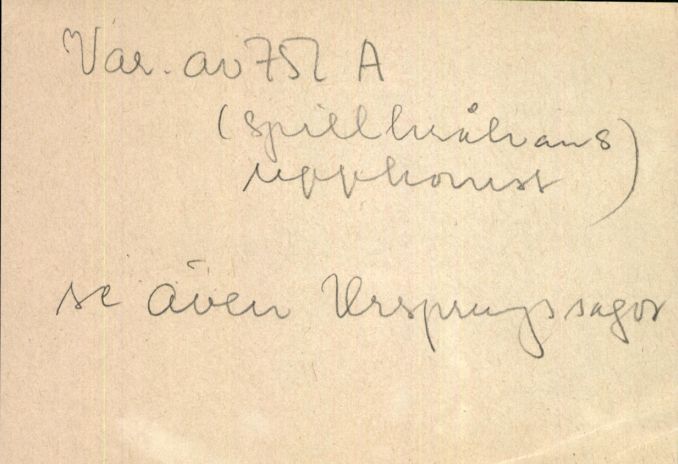 Var. av 751 A
(spillkråkans
uppkomst)
se även Ursprungssagor